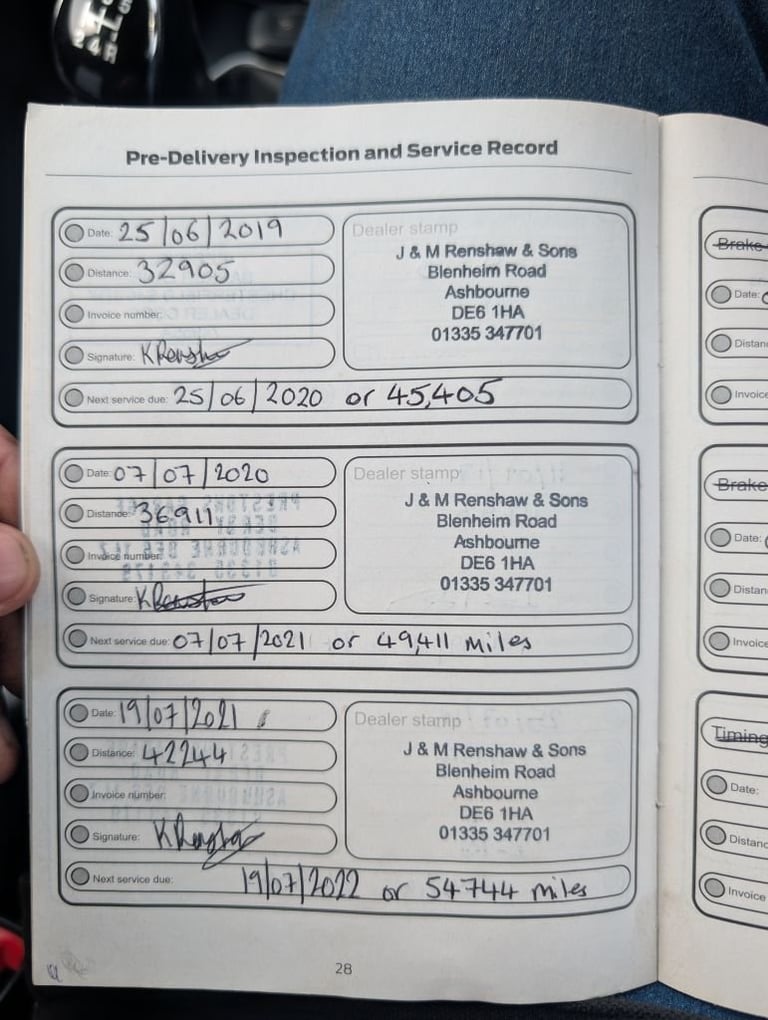 Pre-Delivery Inspection and Service Record
Date: 25/06/2019
Distance: 32905
Invoice number:
Signature: K Renshaw
Next service due: 25/06/2020 or 45,405
Dealer stamp
J & M Renshaw & Sons
Blenheim Road
Ashbourne
DE6 1HA
01335 347701
Date: 07/07/2020
Distance: 36911
Invoice number:
Signature: K Renshaw
Next service due: 07/07/2021 or 49,411 miles
Dealer stamp
J & M Renshaw & Sons
Blenheim Road
Ashbourne
DE6 1HA
01335 347701
Date: 19/07/2021
Distance: 42244
Invoice number:
Signature: K Renshaw
Next service due: 19/07/2022 or 54744 miles
Dealer stamp
J & M Renshaw & Sons
Blenheim Road
Ashbourne
DE6 1HA
01335 347701
28
Brake
Date:
Invoice
Brake
Date:
Invoice
Timing
Date:
Invoice